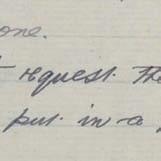 one.
request. The
put in a